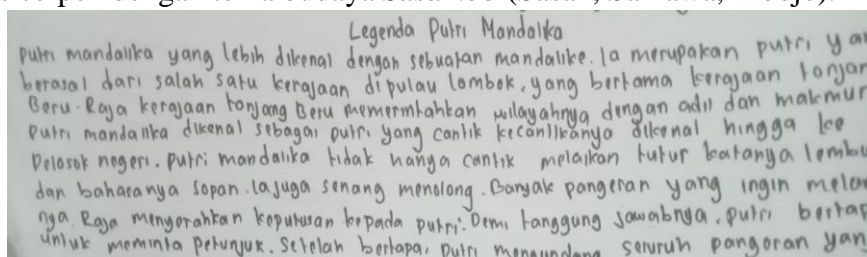 Legenda Putri Mandalika
Putri mandalika yang lebih dikenal dengan sebuatan mandalike. Ia merupakan putri ya
berasal dari salah satu kerajaan dipulau lombok, yang bertama kerajaan tonjan
Beru. Raja kerajaan tonjang Beru memerintahkan wilayahnya dengan adil dan makmur
Putri mandalika dikenal sebagai putri yang cantik kecantikanya dikenal hingga ke
Pelosok negeri. putri mandalika tidak hanya cantik melaikan tutur katanya lembu
dan bahasanya sopan. Ia juga senang menolong. Banyak pangeran yang ingin mela
nya. Raja menyerahkan keputusan kepada putri. Demi tanggung jawabnya, putri bertap
untuk meminta petunjuk. Setelah bertapa, putri mengundang seluruh pangeran yan